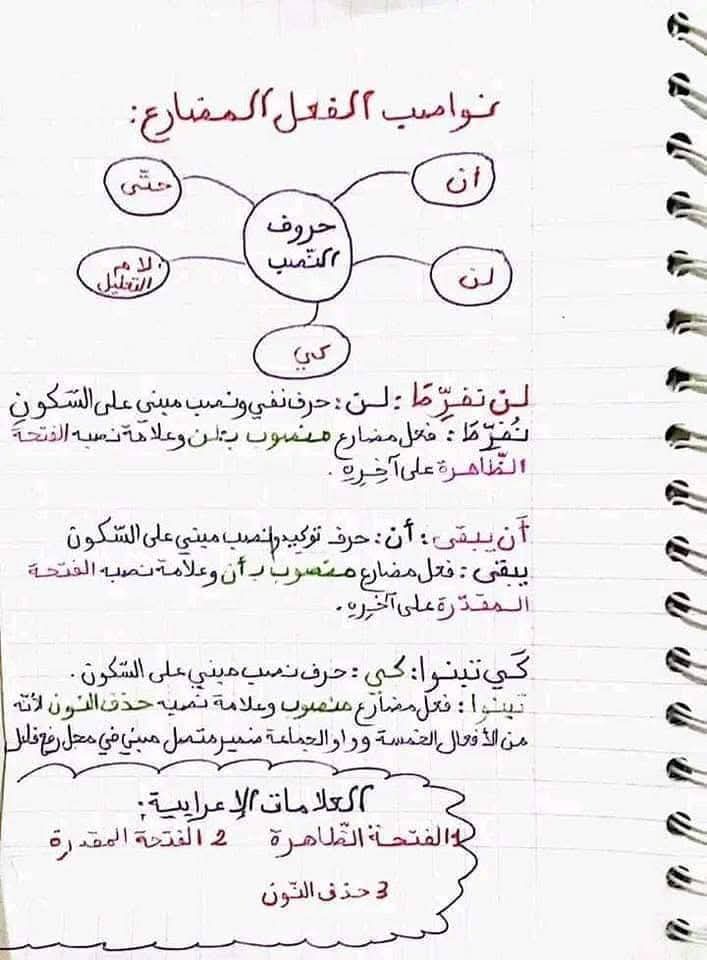 نواصب الفعل المضارع:
أن
حتّى
حروف
النّصب
لن
لام
التعليل
كي
لن تفرِّطَ: لن: حرف نفي ونصب مبني على السّكونِ
تُفرِّطَ: فعل مضارع منصوب بـ:لن وعلامة نصبه الفتحة
الظّاهرة على آخِرِهِ.
أَن يبقى: أن: حرف توكيد ونصب مبني على السّكون
يبقى: فعل مضارع منصوب بـ أن وعلامة نصبه الفتحة
المقدّرة على آخِرِهِ.
كَي تبنوا: كي: حرف نصب مبني على السّكون.
تبنوا: فعل مضارع منصوب وعلامة نصبه حذف النون لأنّه
من الأفعال الخمسة و واو الجماعة ضمير متصل مبني في محل رفع فاعل
العلامات الإعرابية:
1الفتحة الظّاهرة 2 الفتحة المقدرة
3 حذف النّون